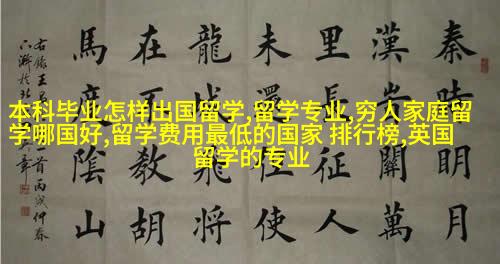 本科毕业怎样出国留学,留学专业,穷人家庭留
学哪国好,留学费用最低的国家 排行榜,英国
留学的专业
秦時明月
漢時關萬
里長征人
未還但使
龍城飛將
在不教胡
馬度陰山
右錄王
首丙戌仲春